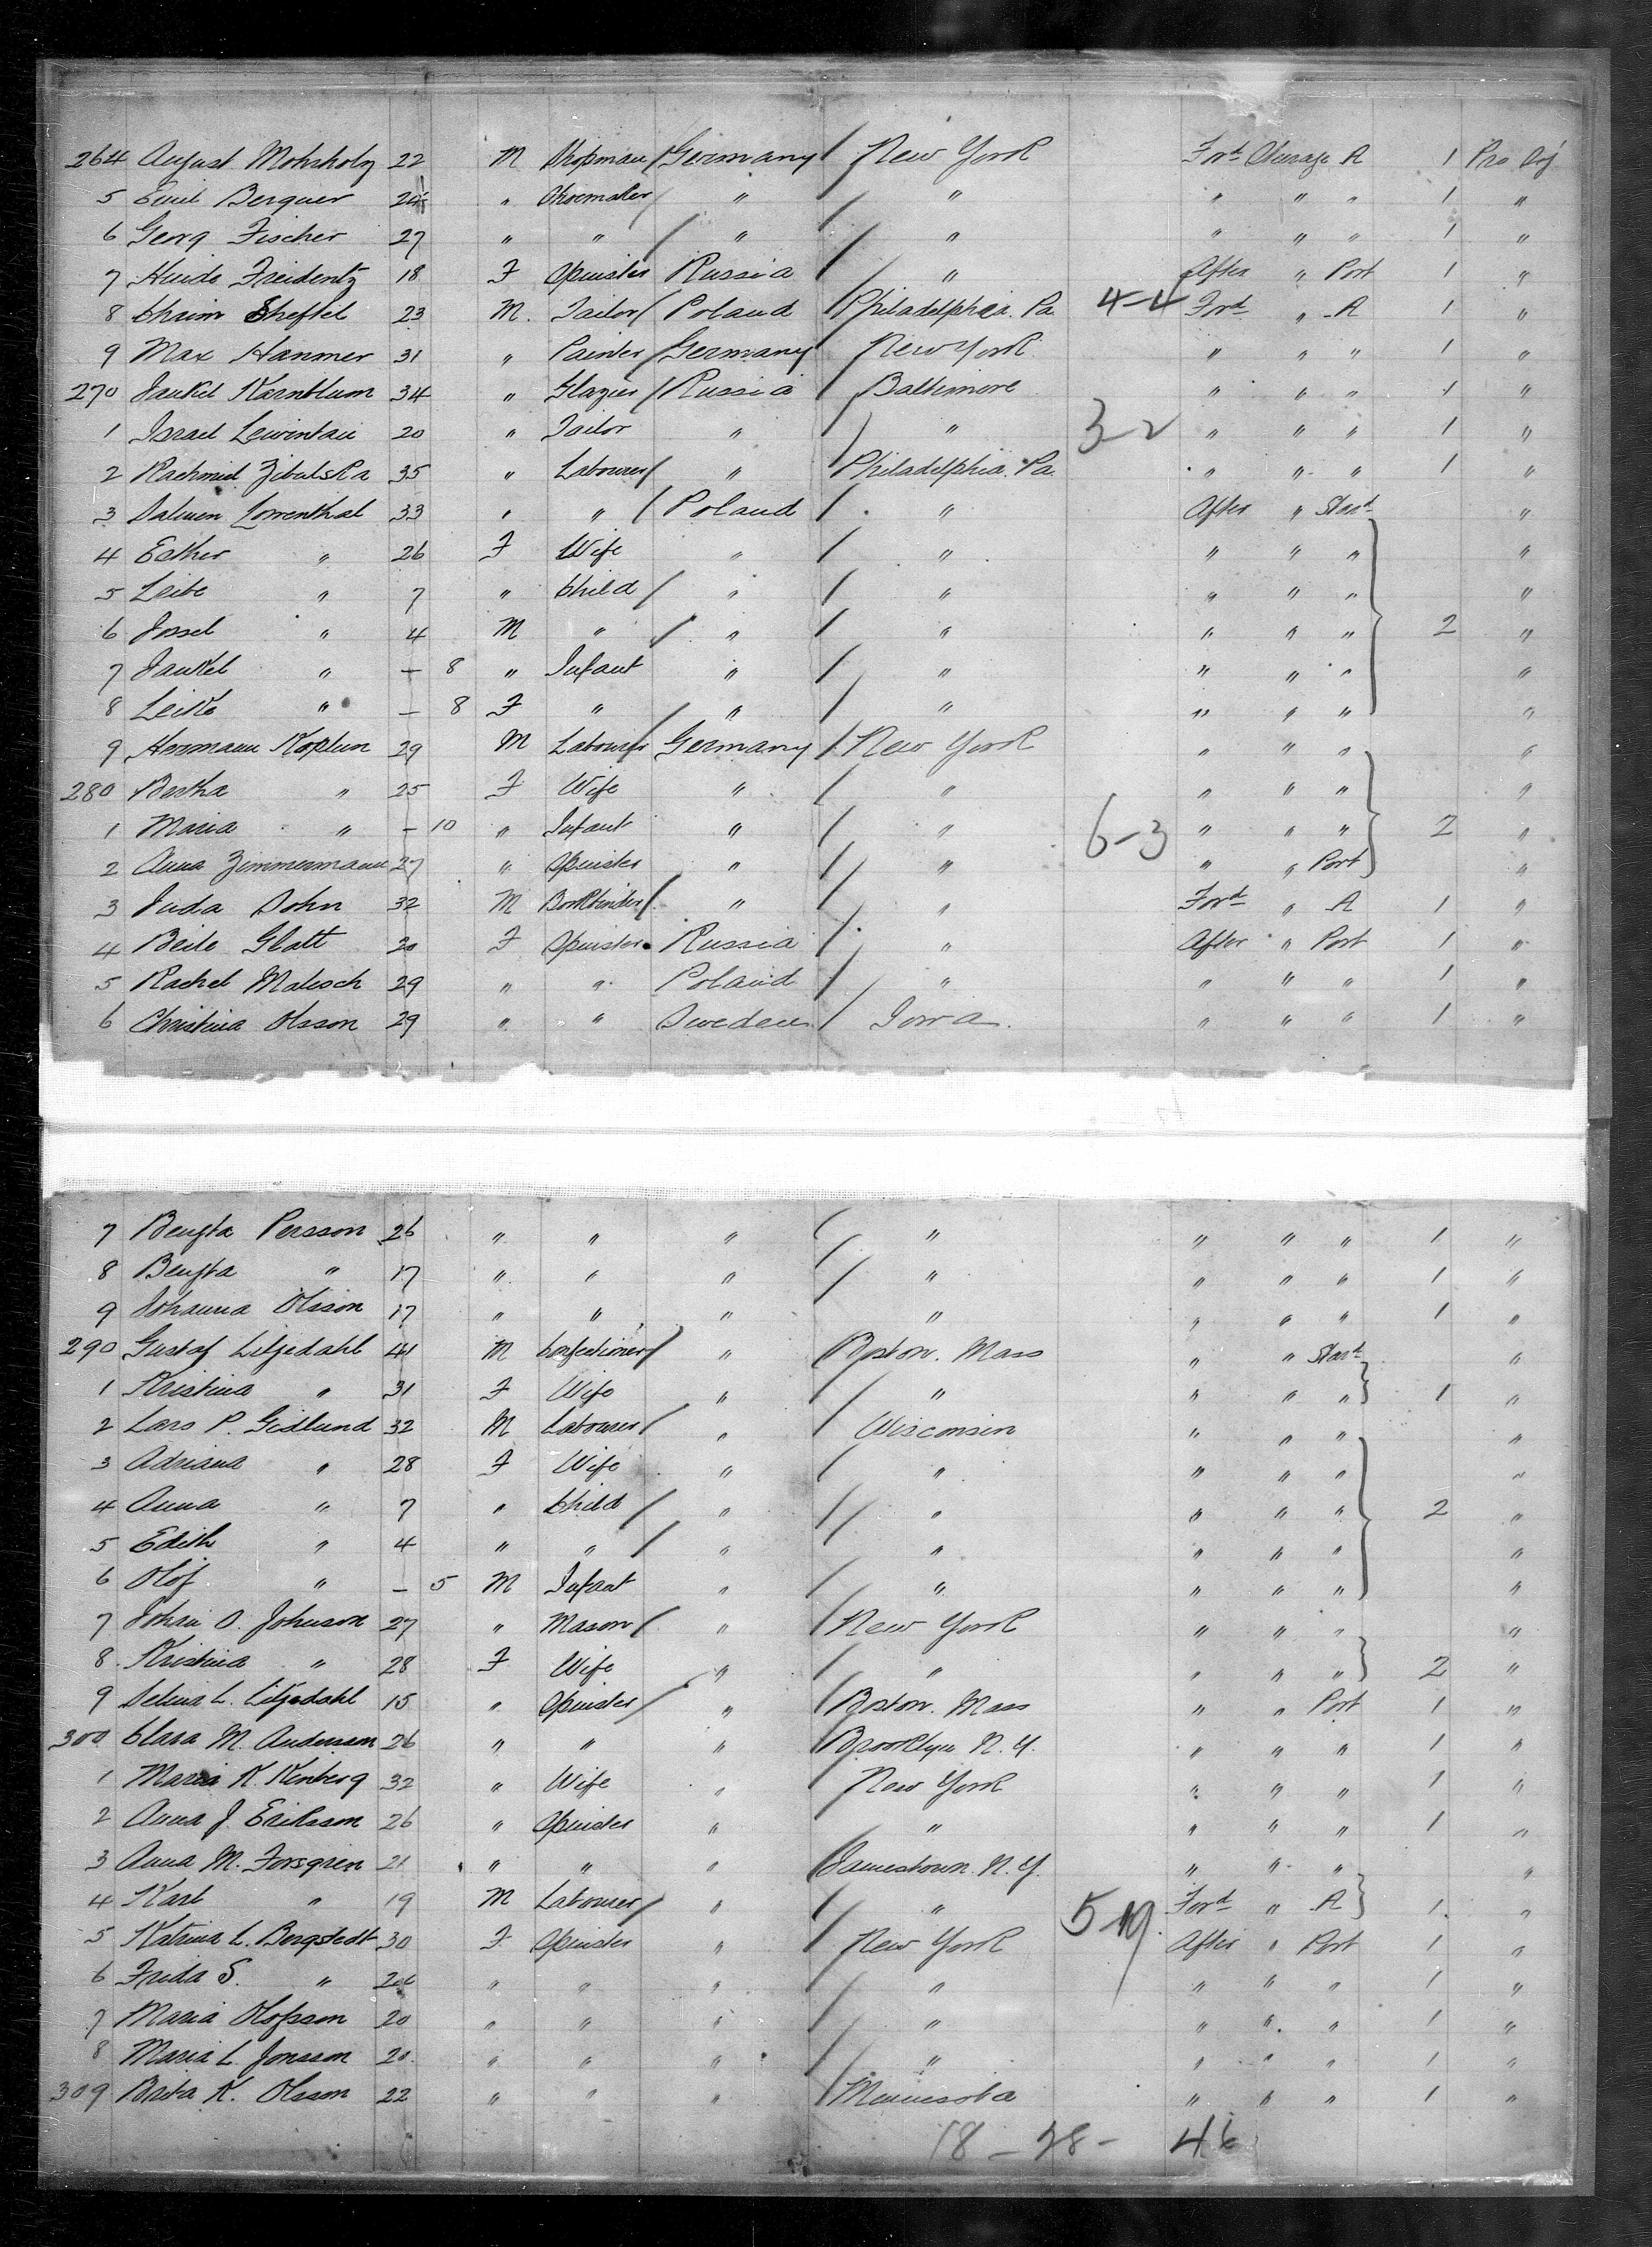 264 August Mohrholz 22 M Shopman Germany New York Ford Steerage A 1 Pro Soj
5 Emil Berguer 24 " Shoemaker " " " " " 1 "
6 Georg Fischer 27 " " " " " " " 1 "
7 18 F Spinster Russia " After " Port 1 "
8 Chaim Sheftel 23 M. Tailor Poland Philadelphia. Pa 4-4 Ford " A 1 "
9 Max Hanmer 31 " Painter Germany New York " " " 1 "
270 Jankel Karnblum 34 " Glazier Russia Baltimore " " " 1 "
1 Israel 20 " Tailor " " 3-2 " " " 1 "
2 35 " Labourer " Philadelphia. Pa " " " 1 "
3 Salmen Lowenthal 33 " " Poland " After " Stard "
4 Esther " 26 F Wife " " " " " "
5 Leibe " 7 " Child " " " " " "
6 Jossel " 4 M " " " " " " 2 "
7 Jankel " - 8 " Infant " " " " " "
8 Leike " - 8 F " " " " " " "
9 Hermann Koplun 29 M Labourer Germany New York " " " "
280 Bertha " 25 F Wife " " " " " "
1 Maria " - 10 " Infant " " 6-3 " " " 2 "
2 Anna Zimmermann 27 " Spinster " " " " Port "
3 Juda Sohn 32 M Bookbinder " " Ford " A 1 "
4 Beile Glatt 20 F Spinster Russia " After " Port 1 "
5 Rachel Malesch 29 " " Poland " " " " 1 "
6 Christina Olsson 29 " " Sweden Iowa. " " " 1 "
7 Bengta Persson 26 " " " " " " " 1 "
8 Bengta " 17 " " " " " " " 1 "
9 Johanna Olsson 17 " " " " " " " 1 "
290 Gustaf Liljedahl 41 M Confectioner " Boston. Mass " " Stard "
1 Kristina " 31 F Wife " " " " " 1 "
2 Lars P. Gidlund 32 M Labourer " Wisconsin " " " "
3 Adriana " 28 F Wife " " " " " "
4 Anna " 7 " Child " " " " " 2 "
5 Edith " 4 " " " " " " " "
6 Olof " - 5 M Infant " " " " " "
7 Johan O. Johnson 27 " Mason " New York " " " "
8 Kristina " 28 F Wife " " " " " 2 "
9 Selma L. Liljedahl 15 " Spinster " Boston. Mass " " Port 1 "
300 Clara M. Anderson 26 " " " Brooklyn N.Y. " " " 1 "
1 Maria K. Kinberg 32 " Wife " New York " " " 1 "
2 Anna J. Eriksson 26 " Spinster " " " " " 1 "
3 Anna M. Forsgren 21 " " " Jamestown. N.Y. " " " "
4 Karl " 19 M Labourer " " Ford " A 1 "
5 Katrina L. Bergstedt 30 F Spinster " New York 5-19 After " Port 1 "
6 Frida S. " " " " " " " " 1 "
7 Maria Olofsson 20 " " " " " " " 1 "
8 Maria L. Jonsson 20 " " " " " " " 1 "
309 Brita K. Olsson 22 " " " Minnesota " " " 1 "
18 - 28 - 46